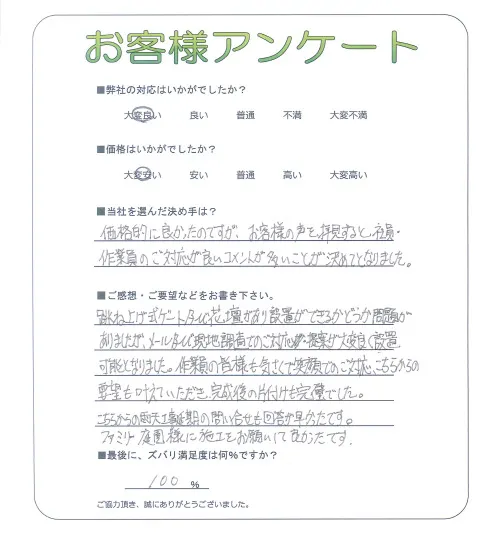 お客様アンケート
■弊社の対応はいかがでしたか？
大変良い 良い 普通 不満 大変不満
■価格はいかがでしたか？
大変安い 安い 普通 高い 大変高い
■当社を選んだ決め手は？
価格的に良かったのですが、お客様の声を拝見すると、社員・
作業員のご対応が良いコメントが多いことが決めてとなりました。
■ご感想・ご要望などをお書き下さい。
跳ね上げ式ゲート 花壇があり設置ができるかどうか問題が
ありましたが、メール 現地調査でのご対応 提案が大変良く設置
可能となりました。作業員の皆様も気さくで笑顔でのご対応、こちらからの
要望も叶えていただき、完成後の片付けも完璧でした。
こちらからの雨天工事延期の問い合せも回答が早かったです。
ファミリー庭園様に施工をお願いして良かったです。
■最後に、ズバリ満足度は何%ですか？
100 %
ご協力頂き、誠にありがとうございました。